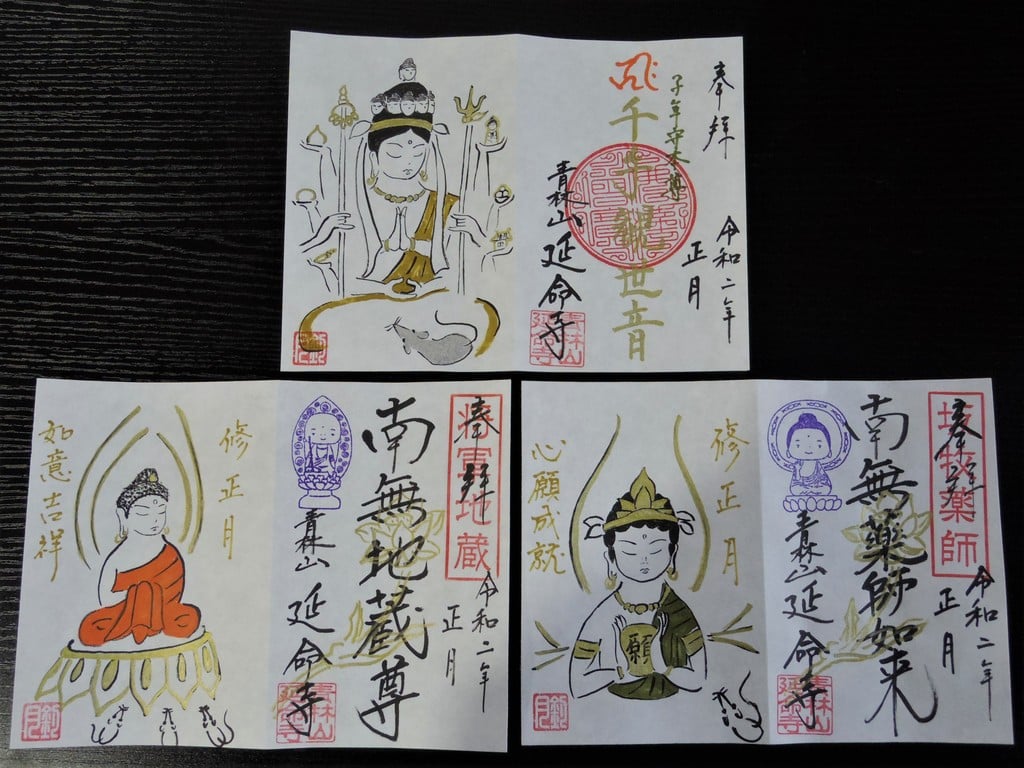 奉拝
子年守本尊
千手観世音
令和二年
正月
青林山 延命寺
青林山
延命寺
修正月
如意吉祥
将軍地蔵
奉拝
南無地蔵尊
令和二年
正月
青林山 延命寺
青林山
延命寺
修正月
心願成就
願
薬師
奉拝
南無薬師如来
令和二年
正月
青林山 延命寺
青林山
延命寺